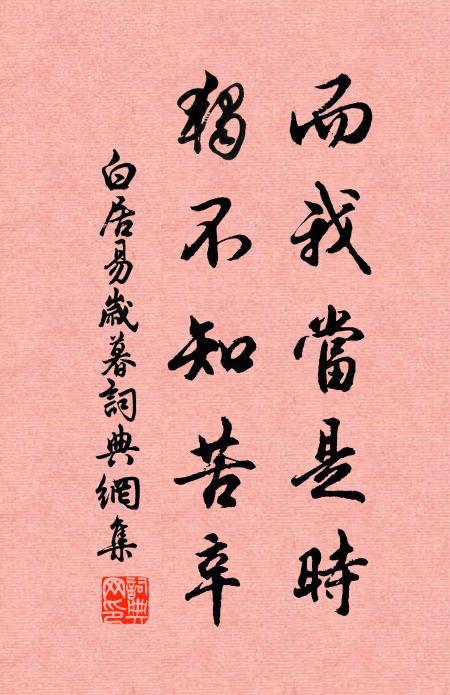 而我當是時
獨不知苦辛
白居易歲暮詞典網集
詞典網印